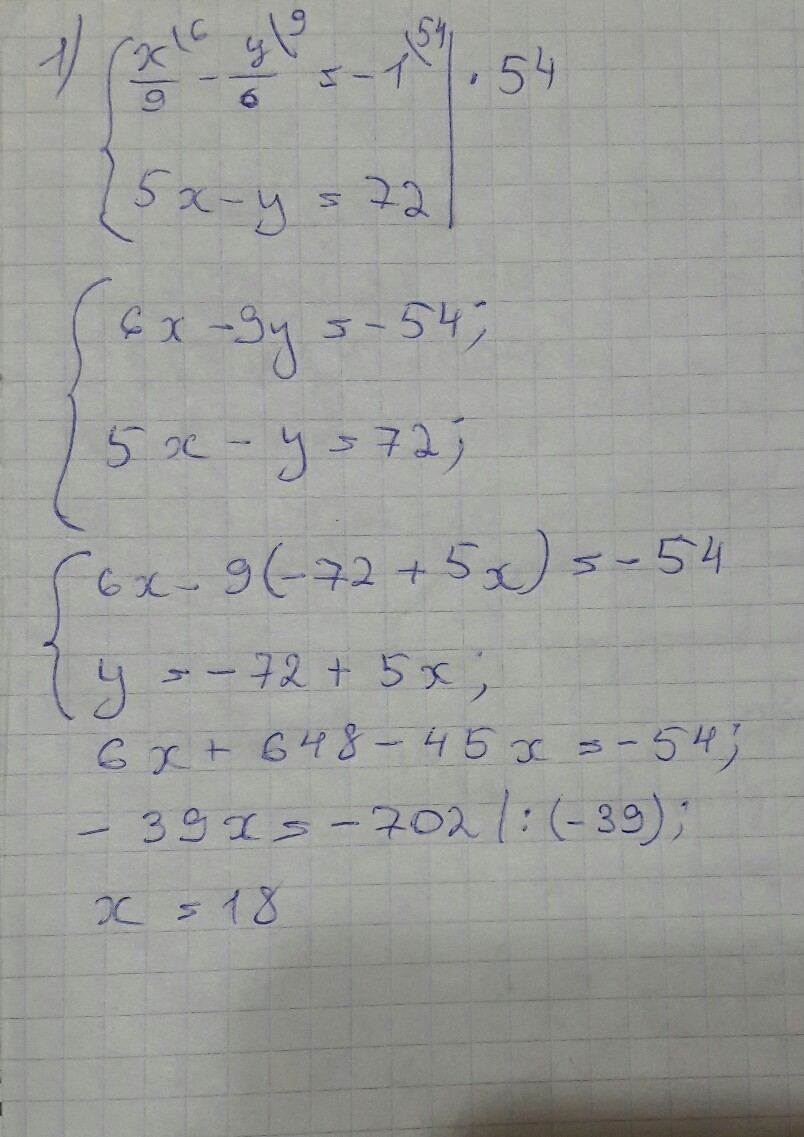 1) { x\6/9 - y\9/6 = -1\54 | · 54
5x - y = 72
{ 6x - 9y = -54;
5x - y = 72;
{ 6x - 9(-72 + 5x) = -54
y = -72 + 5x;
6x + 648 - 45x = -54;
-39x = -702 |:(-39);
x = 18